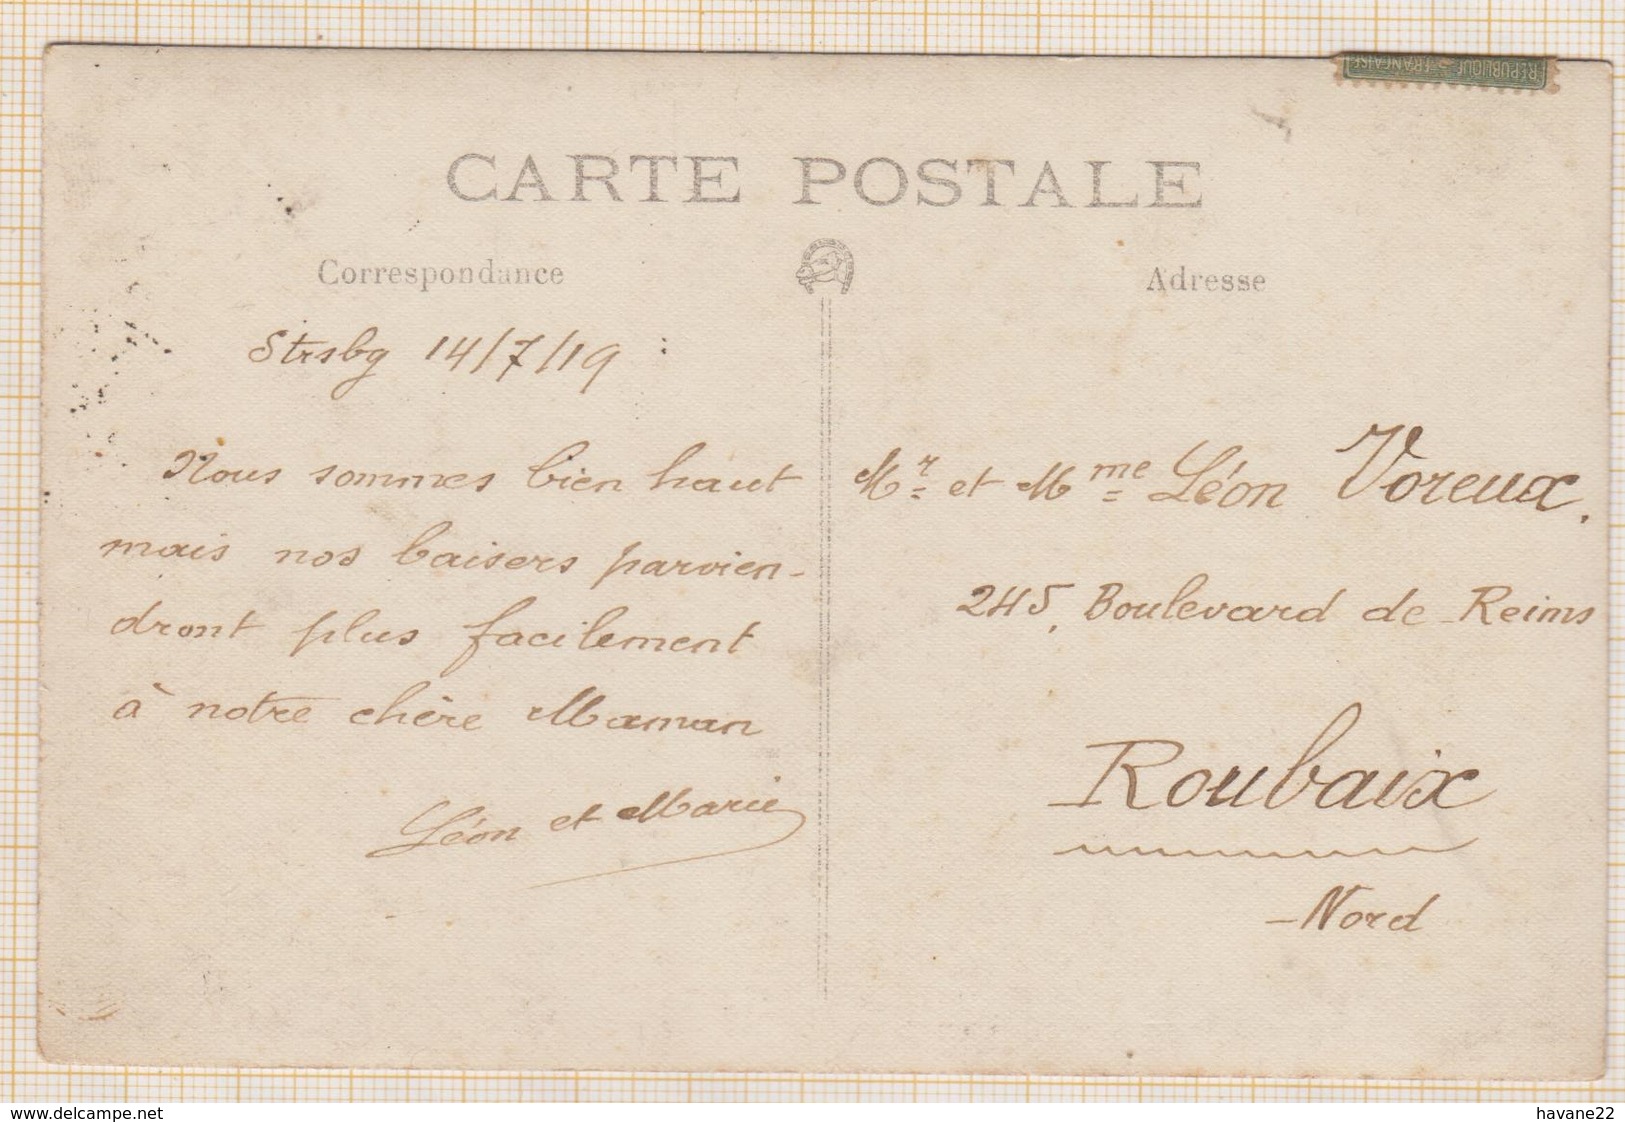 RÉPUBLIQUE FRANÇAISE
CARTE POSTALE
Correspondance
Adresse
Strsbg 14/7/19 :
Nous sommes bien haut
mais nos baisers parvien-
dront plus facilement
à notre chère Maman
Léon et Marie
Mr et Mme Léon Voreux.
245, Boulevard de Reims
Roubaix
Nord
www.delcampe.net
havane22